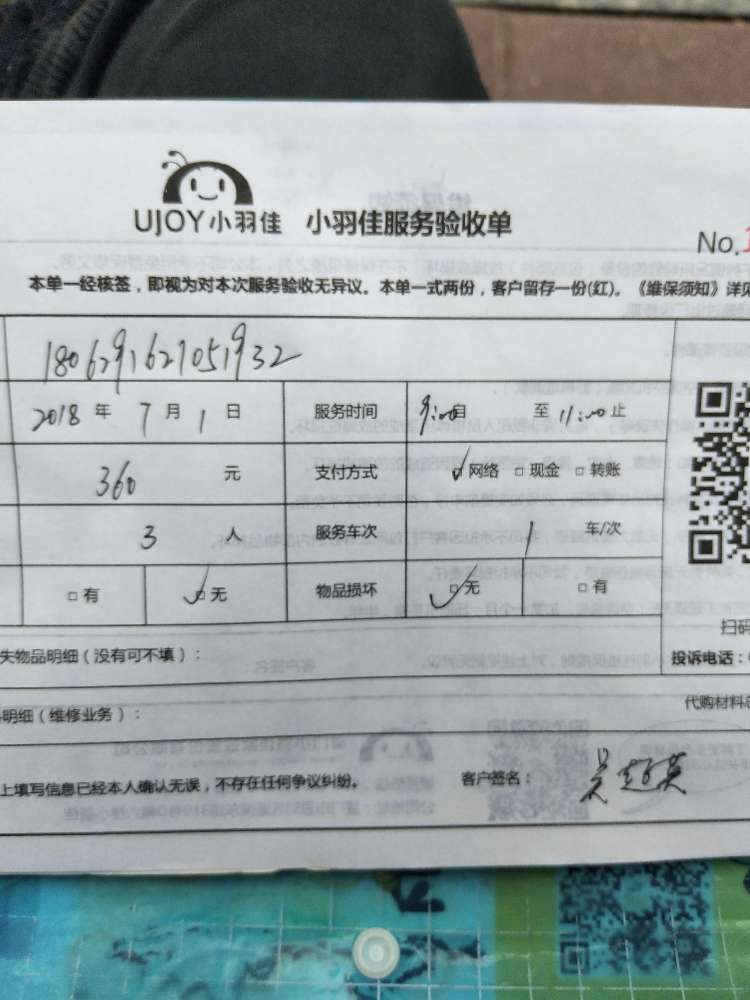 UJOY小羽佳 小羽佳服务验收单
No.1
本单一经核签，即视为对本次服务验收无异议。本单一式两份，客户留存一份(红)。《维保须知》详见
1806291627051932
2018 年 7 月 1 日 服务时间 9:00自 至 11:00 止
360 元 支付方式 ☑网络 □现金 □转账
3 人 服务车次 1 车/次
□有 ☑无 物品损坏 ☑无 □有
扫码
失物品明细（没有可不填）：
投诉电话：
代购材料总
明细（维修业务）：
上填写信息已经本人确认无误，不存在任何争议纠纷。 客户签名：